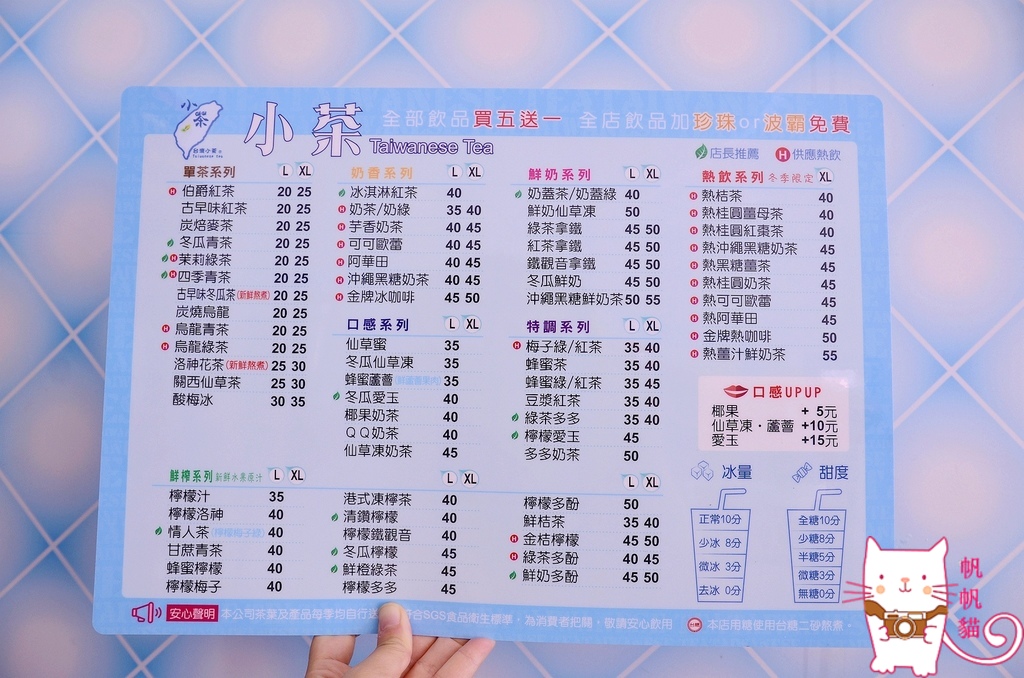 小茶
台灣小茶
Taiwanese tea
小茶
Taiwanese Tea
全部飲品買五送一 全店飲品加珍珠or波霸免費
店長推薦 H供應熱飲
單茶系列 L XL
H 伯爵紅茶 20 25
古早味紅茶 20 25
炭焙麥茶 20 25
冬瓜青茶 20 25
H 茉莉綠茶 20 25
H 四季青茶 20 25
古早味冬瓜茶(新鮮熬煮) 20 25
炭燒烏龍 20 25
H 烏龍青茶 20 25
H 烏龍綠茶 20 25
洛神花茶(新鮮熬煮) 25 30
關西仙草茶 25 30
酸梅冰 30 35
奶香系列 L XL
冰淇淋紅茶 40
H 奶茶/奶綠 35 40
H 芋香奶茶 40 45
H 可可歐蕾 40 45
H 阿華田 40 45
H 沖繩黑糖奶茶 40 45
H 金牌冰咖啡 45 50
口感系列 L XL
仙草蜜 35
冬瓜仙草凍 35
蜂蜜蘆薈(鮮蘆薈果肉) 35
冬瓜愛玉 40
椰果奶茶 40
QQ奶茶 40
仙草凍奶茶 45
鮮奶系列 L XL
奶蓋茶/奶蓋綠 40
鮮奶仙草凍 50
綠茶拿鐵 45 50
紅茶拿鐵 45 50
鐵觀音拿鐵 45 50
冬瓜鮮奶 45 50
沖繩黑糖鮮奶茶 50 55
特調系列 L XL
H 梅子綠/紅茶 35 40
蜂蜜茶 35 40
蜂蜜綠/紅茶 35 45
豆漿紅茶 35 40
綠茶多多 35 40
檸檬愛玉 45
多多奶茶 50
熱飲系列 冬季限定 XL
H 熱桔茶 40
H 熱桂圓薑母茶 40
H 熱桂圓紅棗茶 40
H 熱沖繩黑糖奶茶 45
H 熱黑糖薑茶 45
H 熱桂圓奶茶 45
H 熱可可歐蕾 45
H 熱阿華田 45
H 金牌熱咖啡 50
H 熱薑汁鮮奶茶 55
口感UPUP
椰果 + 5元
仙草凍・蘆薈 +10元
愛玉 +15元
鮮榨系列 新鮮水果原汁 L XL
檸檬汁 35
檸檬洛神 40
情人茶(檸檬梅子綠) 40
甘蔗青茶 40
蜂蜜檸檬 40
檸檬梅子 40
L XL
港式凍檸茶 40
清鑽檸檬 40
檸檬鐵觀音 40
冬瓜檸檬 45
鮮橙綠茶 45
檸檬多多 45
L XL
檸檬多酚 50
鮮桔茶 35 40
金桔檸檬 45 50
綠茶多酚 40 45
鮮奶多酚 45 50
冰量
正常10分
少冰 8分
微冰 3分
去冰 0分
甜度
全糖10分
少糖8分
半糖5分
微糖3分
無糖0分
安心聲明 本公司茶葉及產品每季均自行送 合SGS食品衛生標準,為消費者把關,敬請安心飲用 本店用糖使用台糖二砂熬煮。
帆帆貓